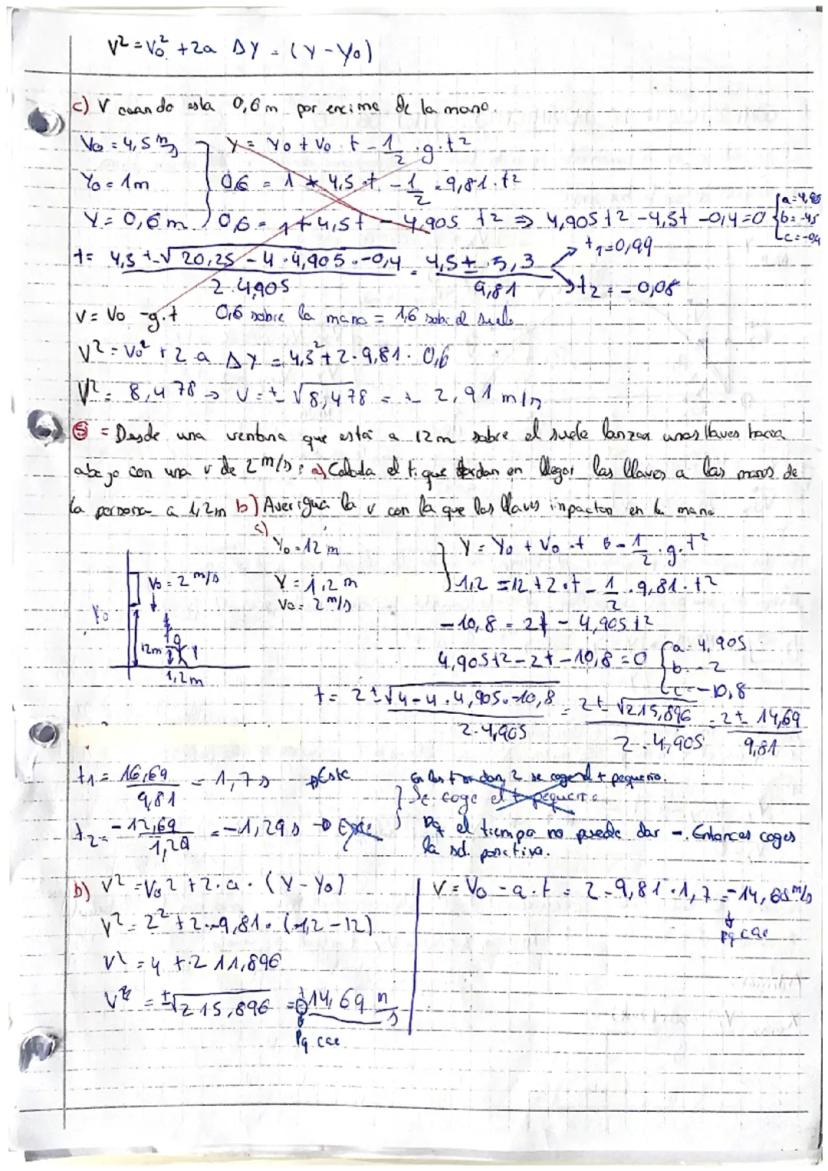 V² = V₀² + 2a ΔY = (Y - Y₀)
c) V cuando esta 0,6 m por encima de la mano.
V₀ = 4,5 m/s
Y = Y₀ + V₀ · t - 1/2 · g · t²
Y₀ = 1m
0,6 = 1 + 4,5 · t - 1/2 · 9,81 · t²
Y = 0,6 m
0,6 = 1 + 4,5t - 4,905 t² ⇒ 4,905t² - 4,5t - 0,4 = 0
a = 4,905
b = -4,5
c = -0,4
t = 4,5 ± √20,25 - 4 · 4,905 · -0,4 / 2 · 4,905 = 4,5 ± 5,3 / 9,81
t₁ = 0,99
t₂ = -0,08
V = V₀ - g · t
0,6 sobre la mano = 1,6 sob el suelo
V² = V₀² + 2 a ΔY = 4,5² + 2 · 9,81 · 0,6
V² = 8,478 → V = ± √8,478 = ± 2,91 m/s
⑤ = Desde una ventana que está a 12m sobre el suelo lanzan unas llaves hacia
abajo con una v de 2 m/s: a) Calcula el t. que tardan en llegar las llaves a las manos de
la persona a 1,2m b) Averigua la v con la que las llaves inpactan en la mano
Y₀ = 12 m
Y = Y₀ + V₀ · t - 1/2 · g · t²
V₀ = 2 m/s
Y = 1,2 m
1,2 = 12 + 2 · t - 1/2 · 9,81 · t²
V₀ = 2 m/s
Y₀
-10,8 = 2t - 4,905 t²
12m
Y
1,2m
4,905t² - 2t - 10,8 = 0
a = 4,905
b = -2
c = -10,8
t = 2 ± √4 - 4 · 4,905 · -10,8 / 2 · 4,905 = 2 ± √215,896 / 2 · 4,905 = 2 ± 14,69 / 9,81
t₁ = 16,69 / 9,81 = 1,7 s → Este
t dan 2 se coge el t pequeño.
Se coge el t pequeño
t₂ = -12,69 / = -1,29 s →
Pq el tiempo no puede dar -. Entonces coges
la sol. positiva.
b) V² = V₀² + 2 · a · (Y - Y₀)
V = V₀ - a · t = 2 - 9,81 · 1,7 = -14,68 m/s
Pq cae
V² = 2² + 2 · -9,81 · (1,2 - 12)
V² = 4 + 211,896
V = ±√215,896 = - 14,69 m/s
Pq cae